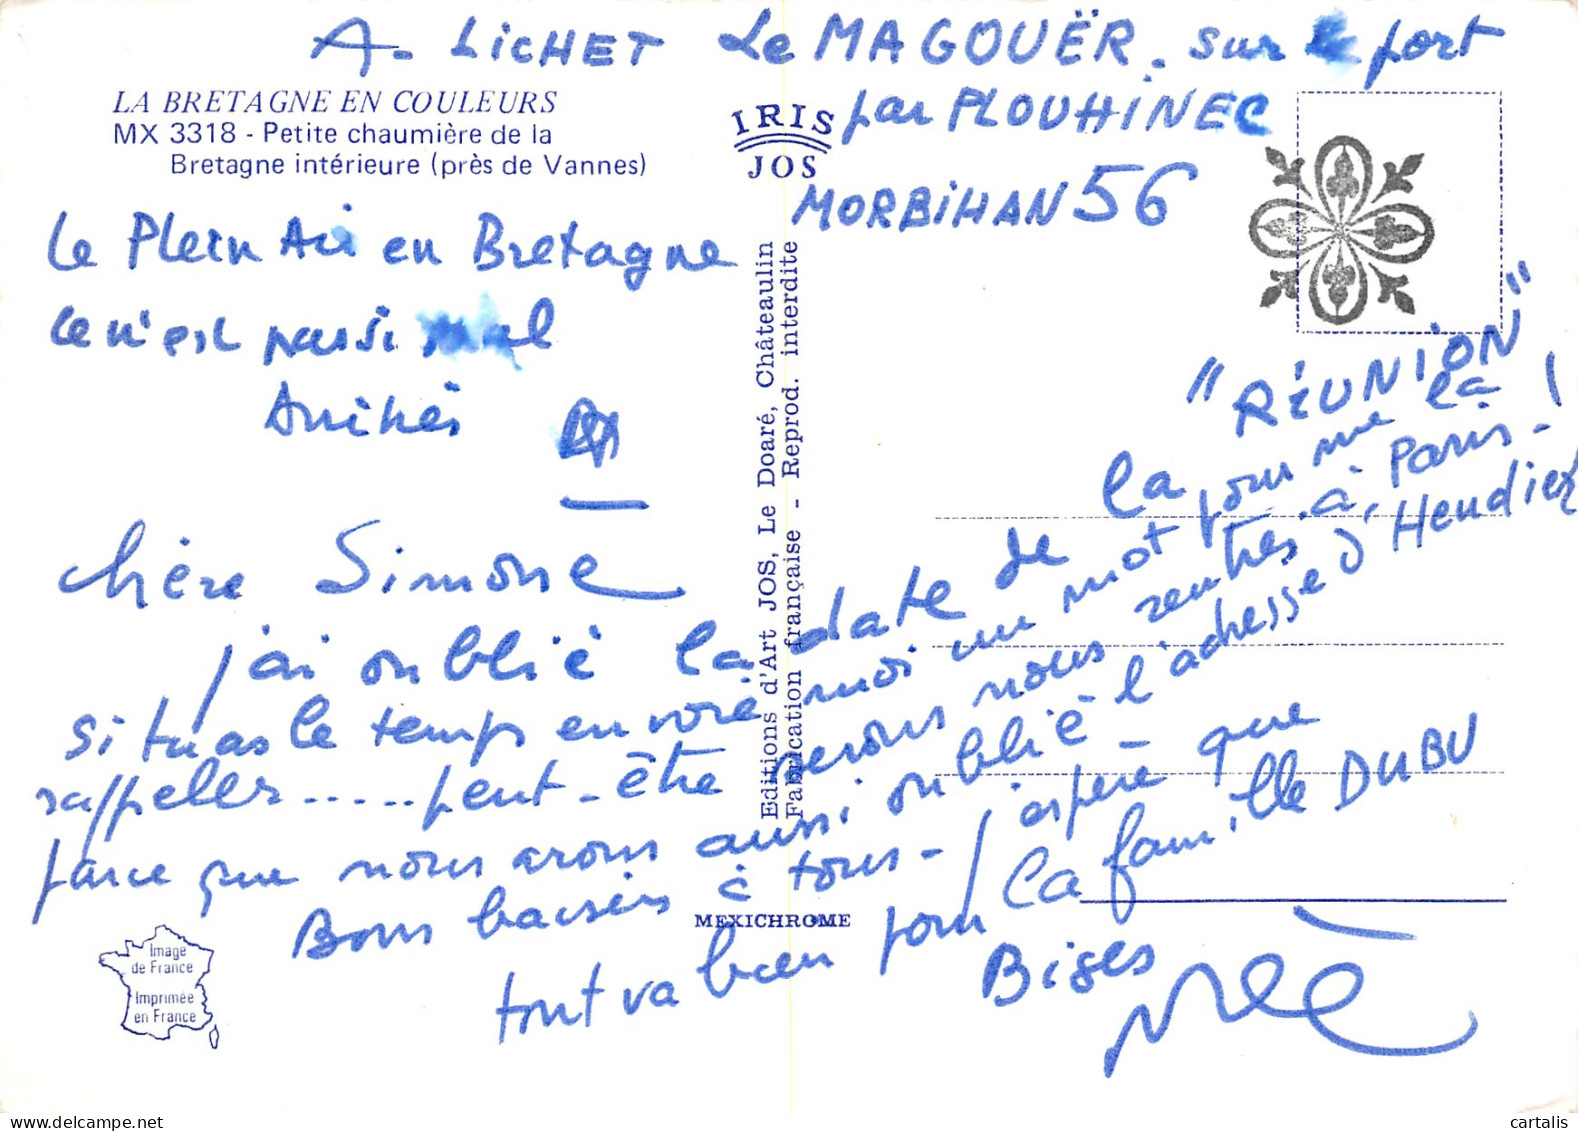 A. LICHET Le MAGOUËR. sur le port
par PLOUHINEC
MORBIHAN 56
LA BRETAGNE EN COULEURS
MX 3318 - Petite chaumière de la
Bretagne intérieure (près de Vannes)
IRIS
JOS
le Plein Air en Bretagne
ce n'est pas si mal
Amitiés
Chère Simone
j'ai oublié la date de la "RÉUNION"
si tu as le temps envoie moi un mot pour me la
rappeler..... peut-être serons nous rentrés à Paris-!
parce que nous avons aussi oublié l'adresse d'Hendiek
Bons baisers à tous - j'espère que
tout va bien pour la famille DUBU
Bises
Editions d'Art JOS, Le Doaré, Châteaulin
Fabrication française - Reprod. interdite
MEXICHROME
Image
de France
Imprimée
en France
cartalis